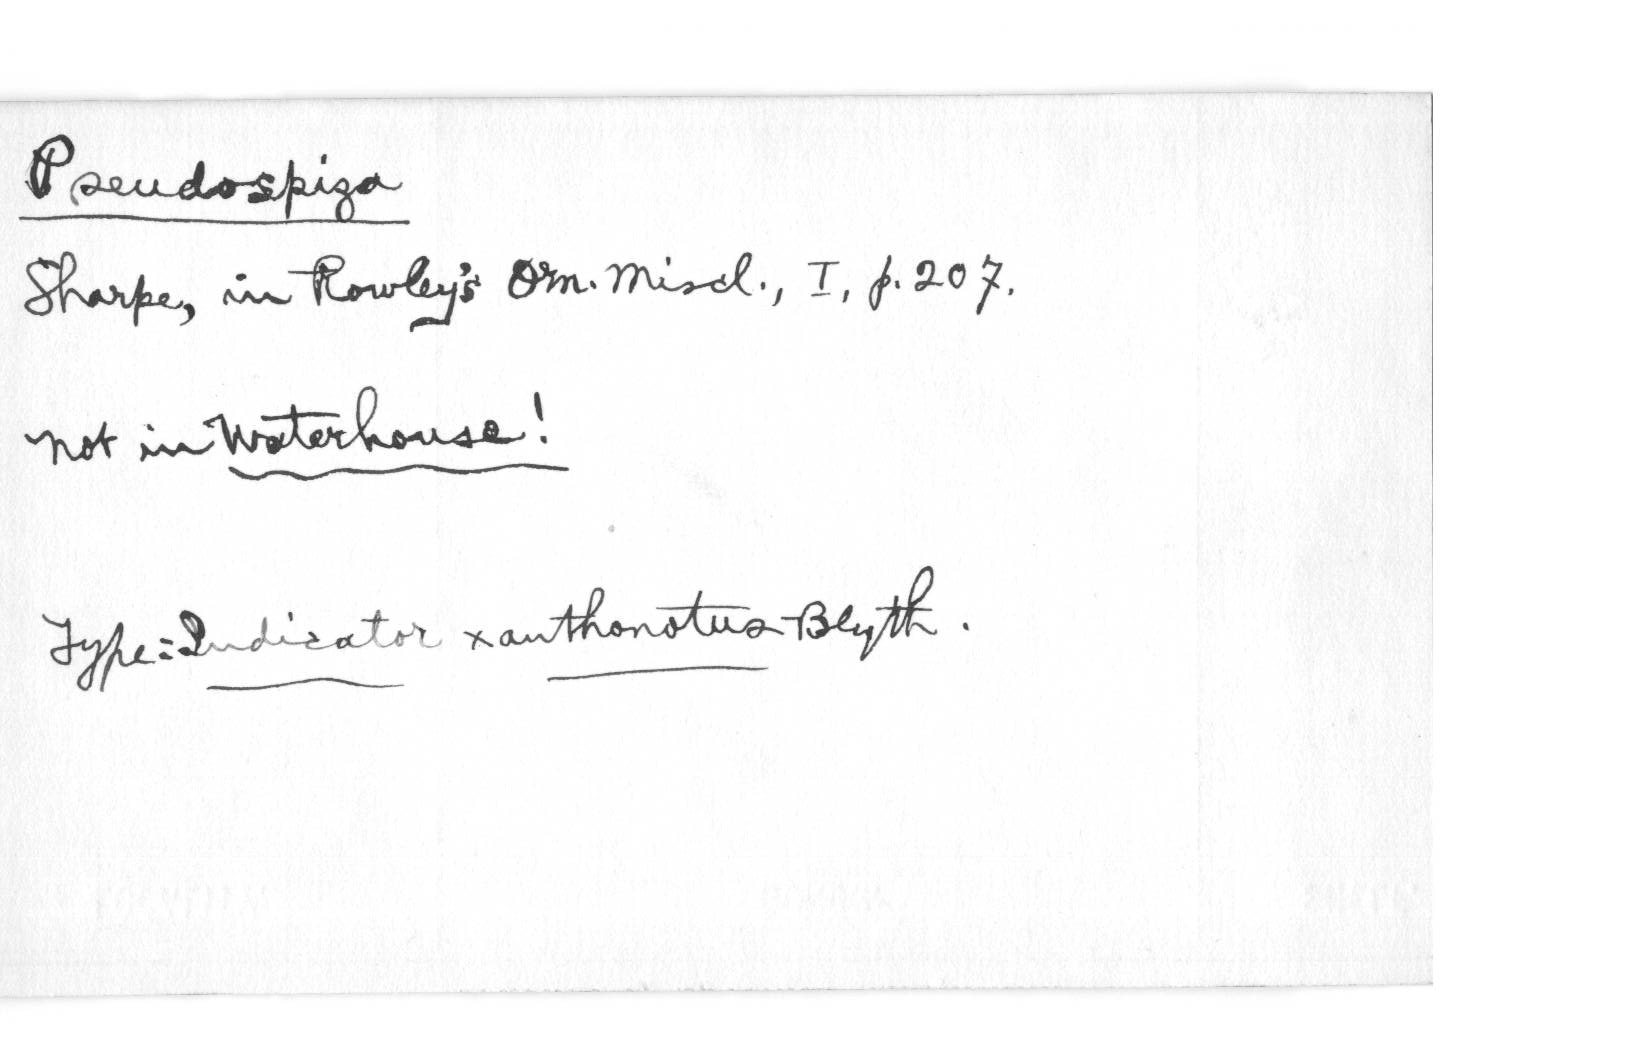 Pseudospiza
Sharpe, in Rowley's Orn. Miscl., I, p. 207.
not in Waterhouse!
Type = Indicator xanthonotus Blyth.